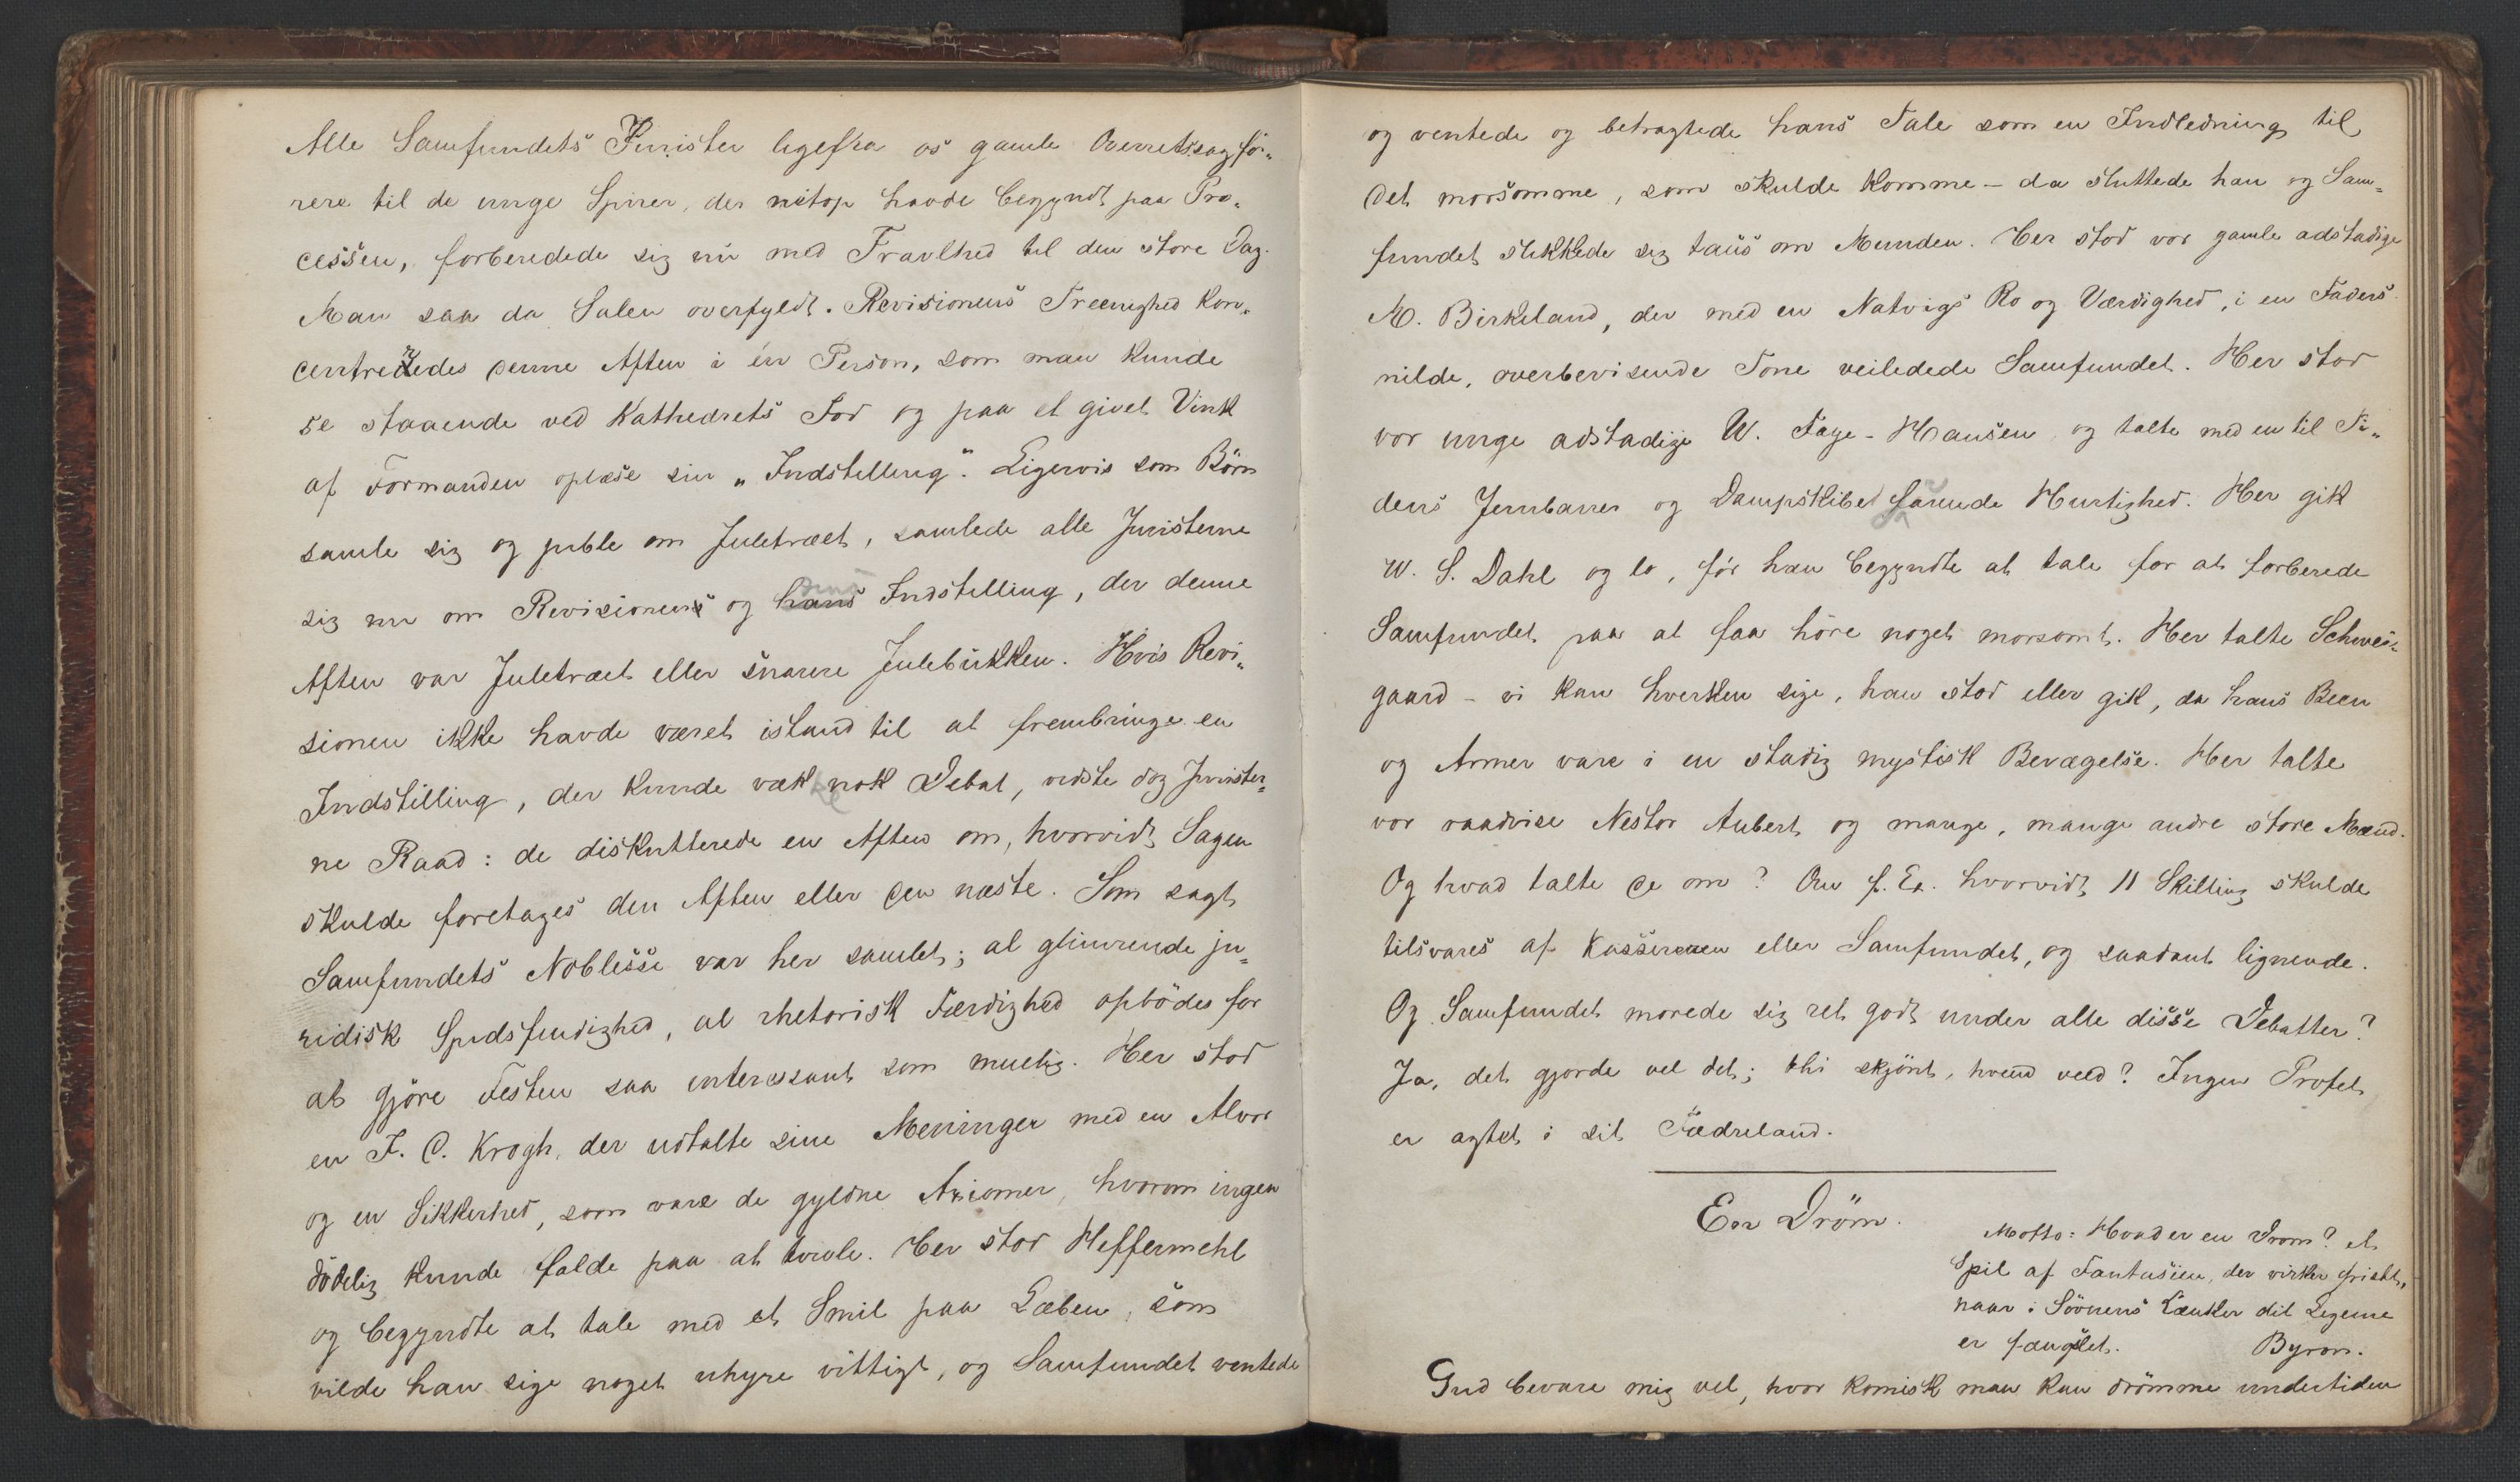 Alle Samfundets Jurister ligefra os gamle Overretssagfö„
rere til de unge Spirer, der netop havde begyndt paa Pro„
cessen, forberedede sig nu med Travlhed til den store Dag.
Man saa da Salen overfyldt. Revisionens Treenighed kon„
centreredes denne Aften i én Person, som man kunde
se staaende ved Kathedrets Fod og paa et givet Vink
af Formanden oplæse sin „Indstilling“. Ligervis som Börn
samle sig og juble om Juletræet, samlede alle Juristerne
sig nu om Revisionens og hans dens Indstilling, der denne
Aften var Juletræet eller snarere Julebukken. Hvis Revi„
sionen ikke havde været istand til at frembringe en
Indstilling, der kunde vække nok Debat, vidste dog Jurister„
ne Raad: de diskutterede en Aften om, hvorvidt Sagen
skulde foretages den Aften eller den næste. Som sagt
Samfundets Noblesse var her samlet; al glimrende ju„
ridisk Spidsfindighed, al rhetorisk Færdighed opbödes for
at gjöre Festen saa interessant som muelig. Her stod
en F. C. Krogh, der udtalte sine Meninger med en Alvor
og en Sikkerhed, som vare de gyldne Axiomer, hvorom ingen
dödelig kunde falde paa at tvivle. Her stod Heffermehl
og begyndte at tale med et Smil paa Læben, som
vilde han sige noget uhyre vittigt, og Samfundet ventede
og ventede og betragtede hans Tale som en Indledning til
det morsomme, som skulde komme – da sluttede han og Sam„
fundet slikkede sig taus om Munden. Her stod vor gamle adstadige
M. Birkeland, der med en Natvigs Ro og Værdighed, i en Faders
milde, overbevisende Tone veiledede Samfundet. Her stod
vor unge adstadige W. Faye-Hansen og talte med en til Ti„
dens Jernbaner og Dampskibe svarende Hurtighed. Her gik
W. S. Dahl og lo, för han begyndte at tale for at forberede
Samfundet paa at faa höre noget morsomt. Her talte Schwei„
gaard – vi kan hverken sige, han stod eller gik, da hans Been
og Armer vare i en stadig mystisk Bevægelse. Her talte
vor raadvise Nestor Aubert og mange, mange andre store Mænd.
Og hvad talte de om? Om f. Ex. hvorvidt 11 Skilling skulde
tilsvares af Kassereren eller Samfundet, og saadant lignende.
Og Samfundet morede sig ret godt under alle disse Debatter?
Ja, det gjorde vel det; thi skjönt, hvem veed? Ingen Profet
er agtet i sit Fædreland.
En Dröm.
Motto: Hvad er en Dröm? et
Spil af Fantasien, der virker friskt,
naar i Sövnens Lænker dit Legeme
er fængslet.
Byron.
Gud bevare mig vel, hvor komisk man kan drömme undertiden